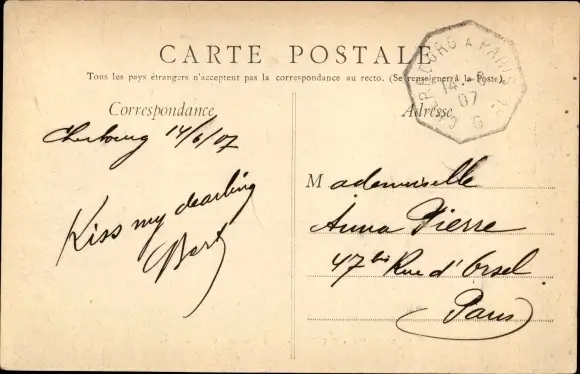 CARTE POSTALE
Tous les pays étrangers n'acceptent pas la correspondance au recto. (Se renseigner à la Poste).
Correspondance
Cherbourg 14/6/07
Kiss my dearling
Bert
CHERBOURG A PARIS
14 - 6
07
G
Adresse
Mademoiselle
Anna Pierre
47 bis Rue d'Orsel
Paris